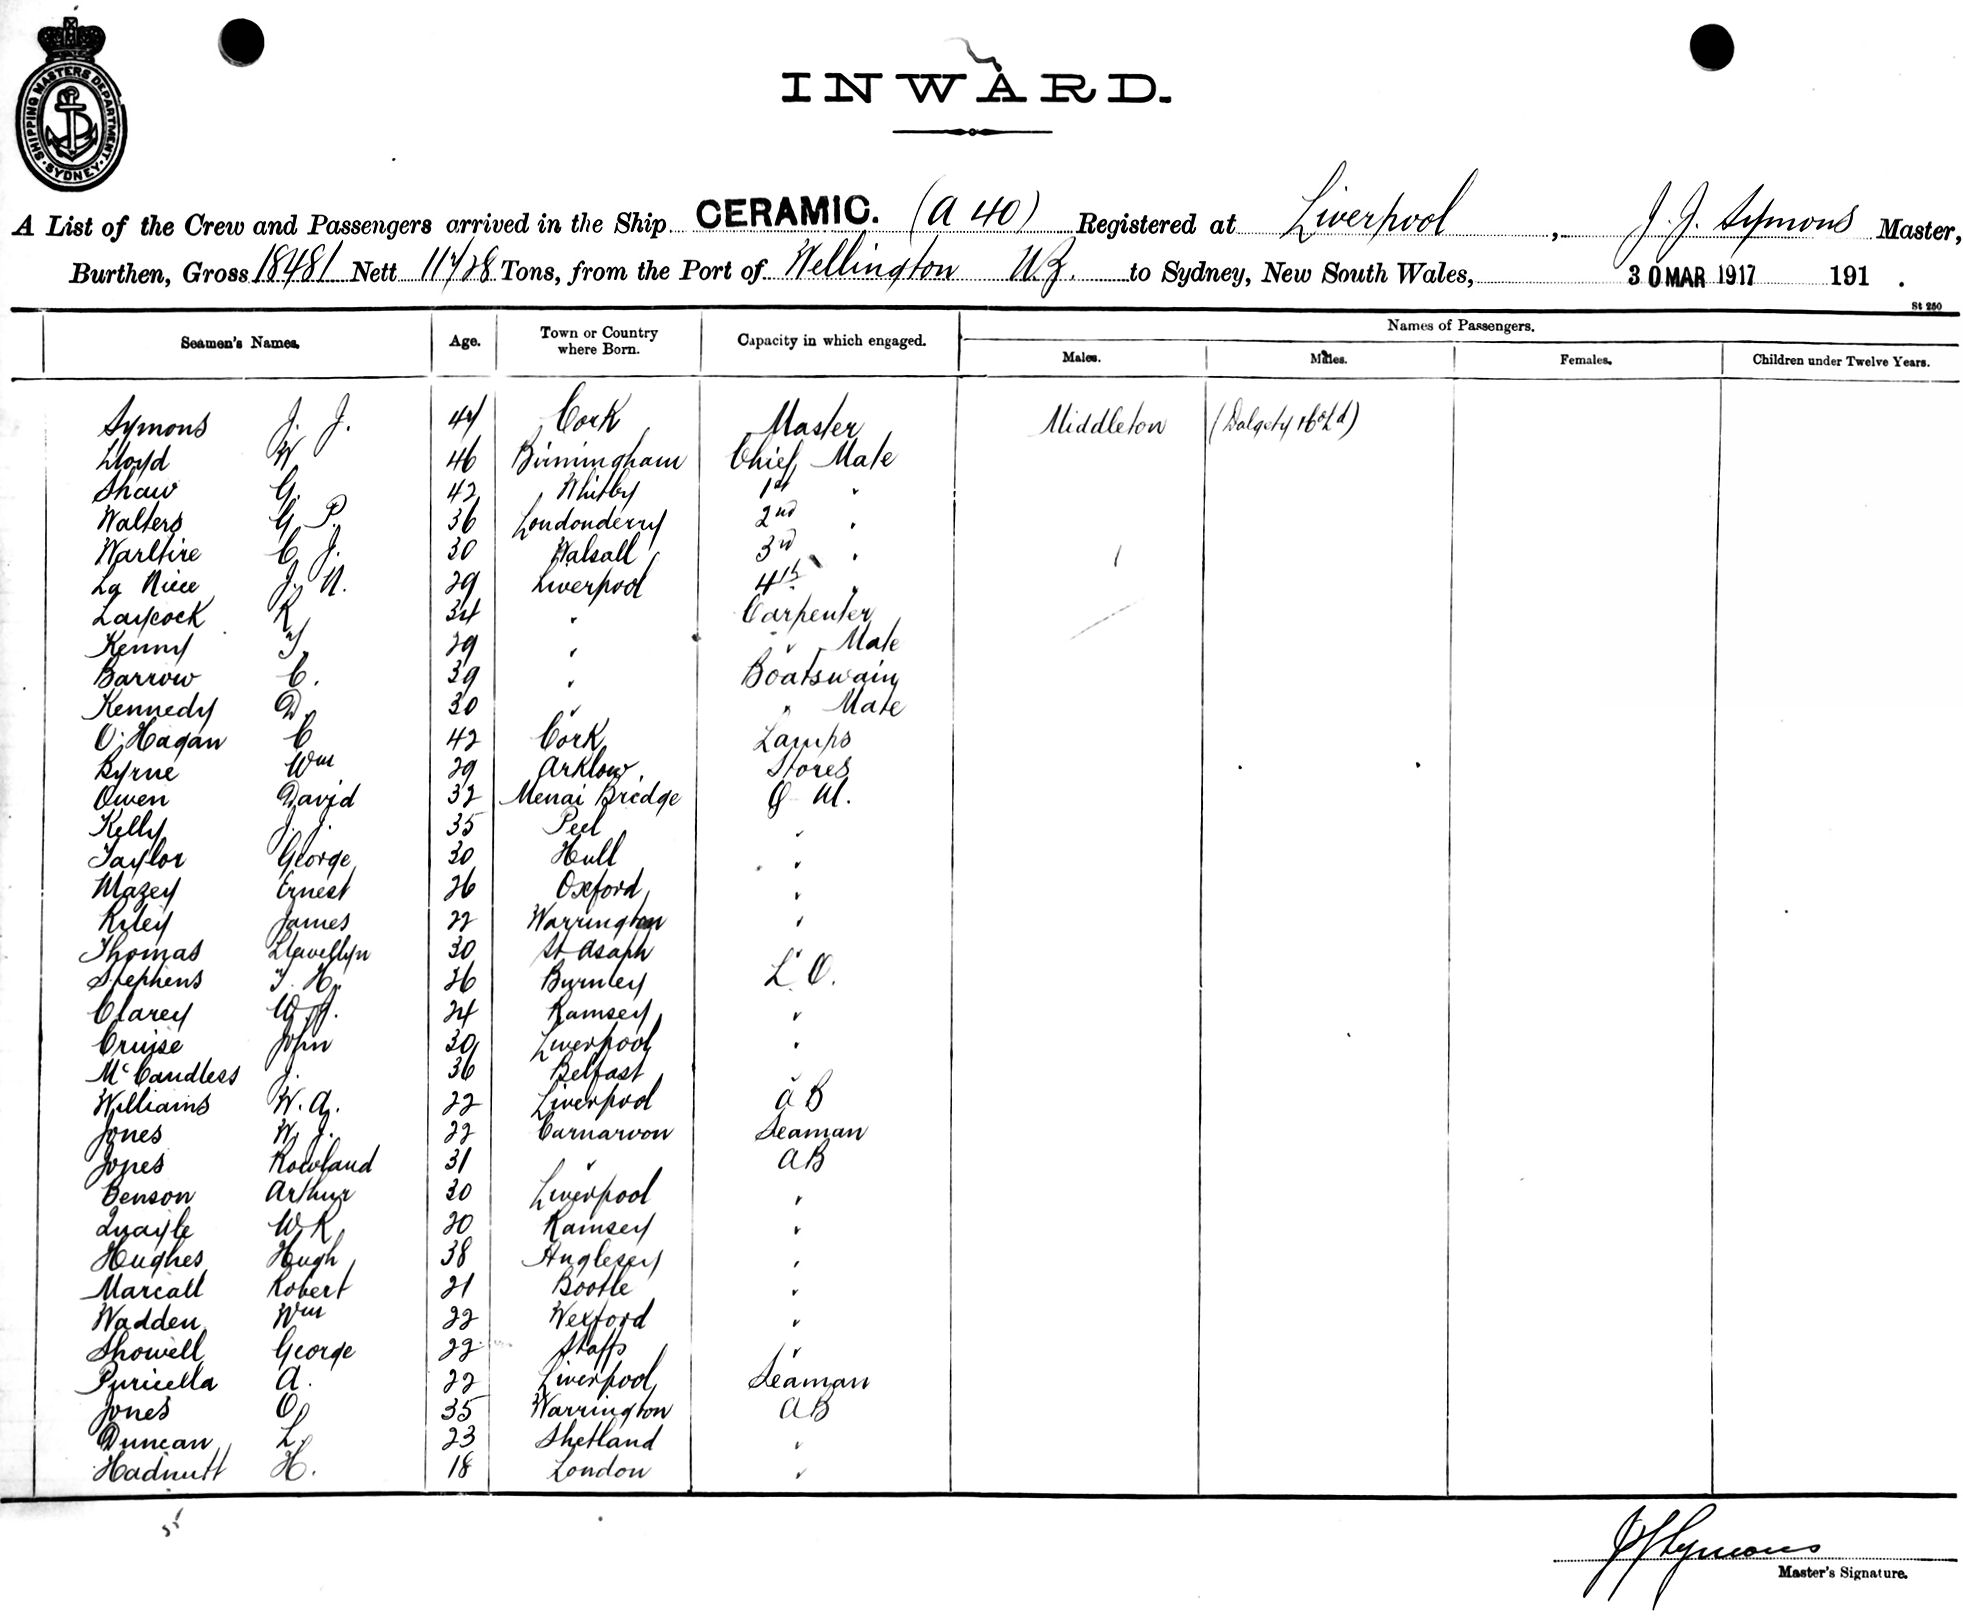 SHIPPING MASTERS DEPARTMENT. SYDNEY.
INWARD.
A List of the Crew and Passengers arrived in the Ship CERAMIC. (A 40) Registered at Liverpool, J. J. Symons Master,
Burthen, Gross 18481 Nett 11728 Tons, from the Port of Wellington N.Z. to Sydney, New South Wales, 30 MAR 1917 191 .
St 250
Seamen's Names. Age. Town or Country where Born. Capacity in which engaged. Names of Passengers.
Males. Males. Females. Children under Twelve Years.
Symons J. J. 47 Cork Master Middleton (Dalgety & Co Ld)
Lloyd W 46 Birmingham Chief Mate
Shaw G. 42 Whitby 1st "
Walters G. P. 36 Londonderry 2nd "
Warltire C. J. 30 Walsall 3rd "
La Niece J. N. 29 Liverpool 4th "
Laycock R 34 " Carpenter
Kenny T. 29 " " Mate
Barrow C. 39 " Boatswain
Kennedy D. 30 " " Mate
O'Hagan C 42 Cork Lamps
Byrne Wm 29 Arklow Stores
Owen David 32 Menai Bridge Q M.
Kelly J. J. 35 Peel "
Taylor George 30 Hull "
Mazey Ernest 26 Oxford "
Riley James 22 Warrington "
Thomas Llewellyn 30 St Asaph
Stephens T. H. 26 Burnley L. O.
Clarey W. J. 24 Ramsey "
Cruise John 30 Liverpool "
McCandless J. 36 Belfast "
Williams W. A. 22 Liverpool A B
Jones W. J. 22 Carnarvon Seaman
Jones Rowland 31 " A B
Benson Arthur 30 Liverpool "
Quayle W K 20 Ramsey "
Hughes Hugh 38 Anglesey "
Marcall Robert 21 Bootle "
Wadden Wm 22 Wexford "
Showell George 22 Staffs "
Puricella A. 22 Liverpool Seaman
Jones O. 35 Warrington A B
Duncan L. 23 Shetland "
Hadnutt H. 18 London "
35
J J Symons
Master's Signature.